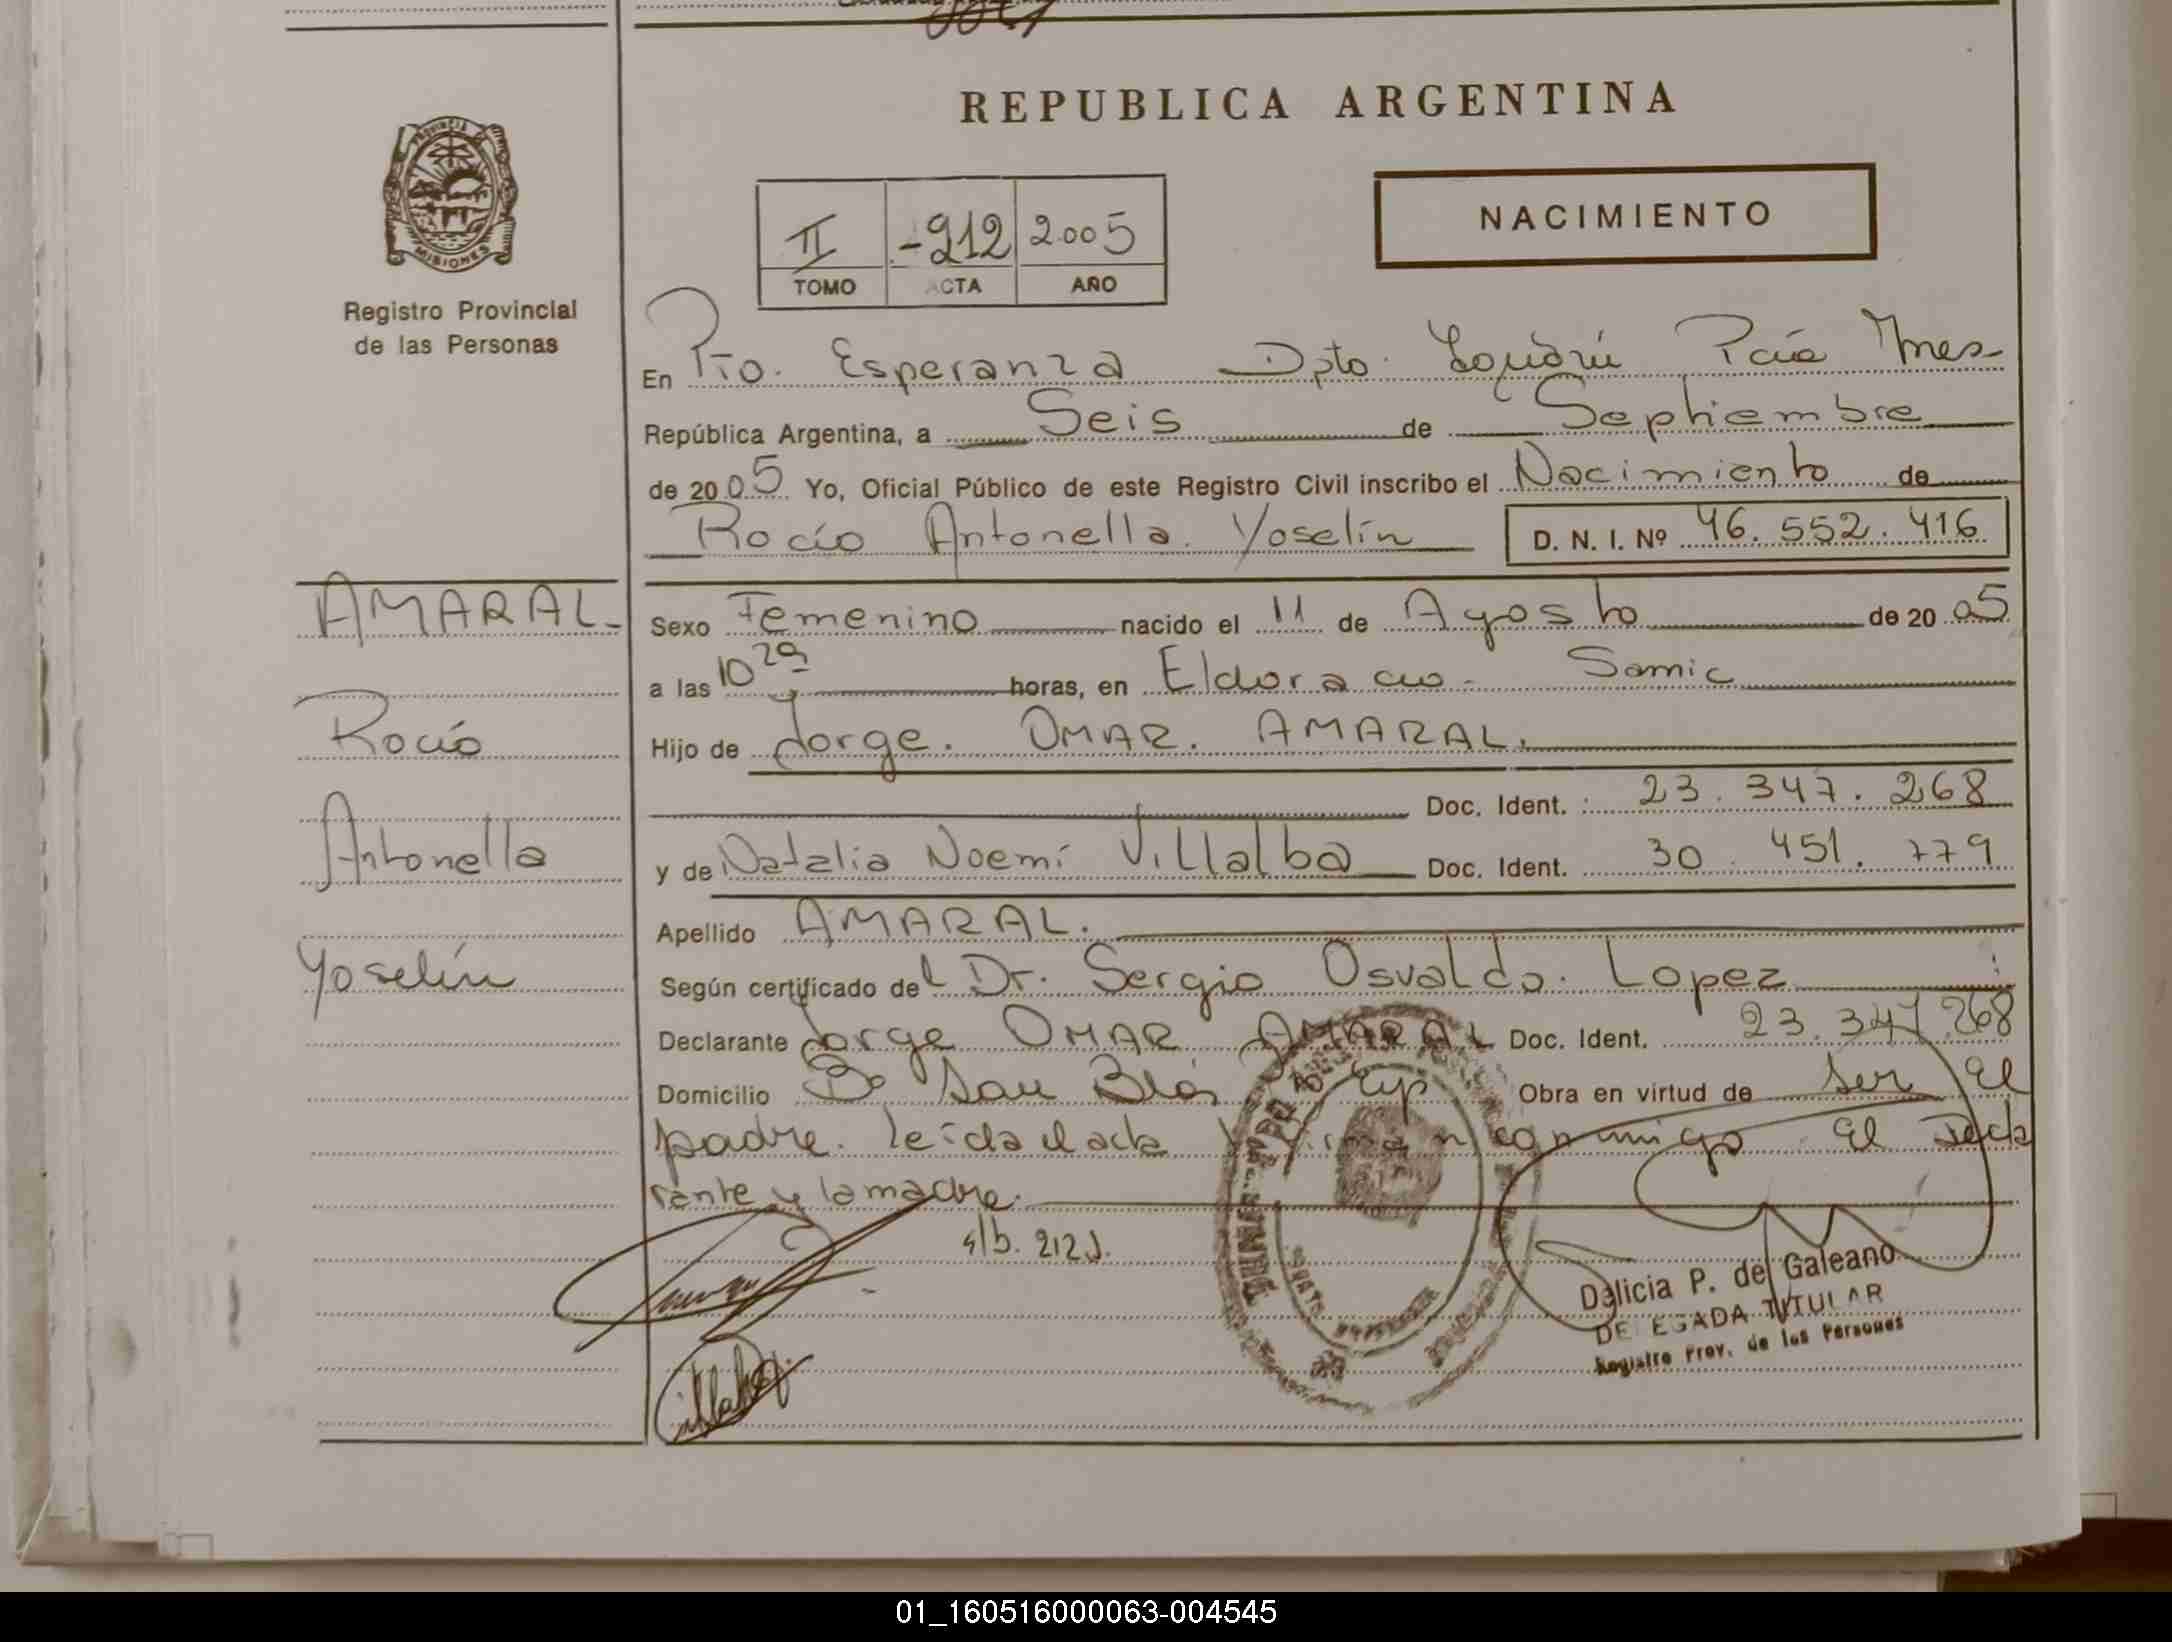 REPUBLICA ARGENTINA
PROVINCIA
MISIONES
Registro Provincial
de las Personas
NACIMIENTO
II -212 2005
TOMO ACTA AÑO
En Pto. Esperanza Dpto. Iguazú País Mnes-
República Argentina, a Seis de Septiembre
de 2005 Yo, Oficial Público de este Registro Civil inscribo el Nacimiento de
Rocío Antonella Yoselín D. N. I. Nº 46.552.416
AMARAL-
Sexo Femenino nacido el 11 de Agosto de 2005
a las 10 29 horas, en Eldorado - Samic
Rocío
Hijo de Jorge. OMAR. AMARAL.
Doc. Ident. : 23.347.268
Antonella
y de Natalia Noemí Villalba Doc. Ident. 30.451.779
Apellido AMARAL.
Yoselín
Según certificado del Dr. Sergio Osvaldo. Lopez
Declarante Jorge OMAR AMARAL Doc. Ident. 23.347.268
Domicilio Bº San Blás Obra en virtud de ser el
padre. leída el acta firman conmigo el Decla
rante y la madre.
Delicia P. de Galeano
DELEGADA TITULAR
Registro Prov. de las Personas
01_160516000063-004545